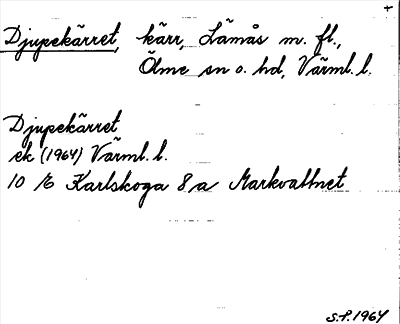 +
Djupekärret, kärr, Lämås m. fl.,
Ölme sn o. hd, Värml. l.
Djupekärret
ek (1964) Värml. l.
10 /6 Karlskoga 8 a Markvattnet
S.F. 1964